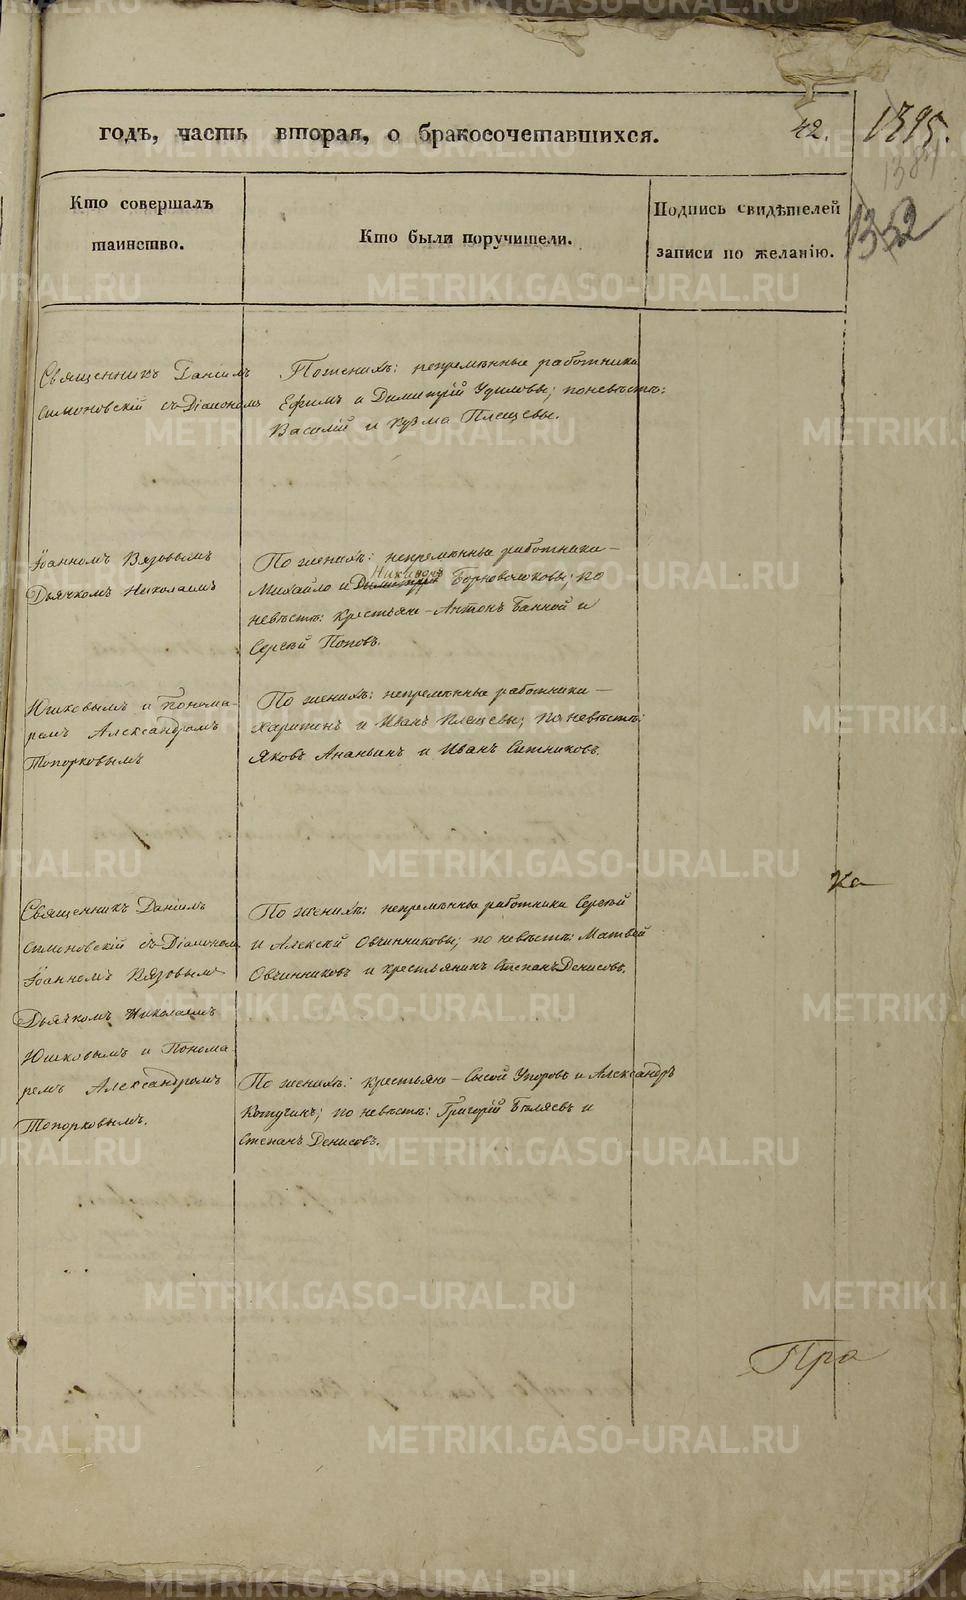 годъ, часть вторая, о бракосочетавшихся.
42.
1395.
1352
Кто совершалъ
таинство.
Кто были поручители.
Подпись свидѣтелей
записи по желанію.
Священникъ Даніилъ
Симоновскій съ Діакономъ
По женихѣ: непремѣнные работники
Ефимъ и Димитрій Удиловы; по невѣстѣ:
Василій и Кузма Плещевы.
Іоанномъ Вязовымъ
Дьячкомъ Николаемъ
По женихѣ: непремѣнные работники –
Никифоръ
Михайло и Димитрій Борноволоковы; по
невѣстѣ: крестьяне – Антонъ Банной и
Сергѣй Поповъ.
Юшковымъ и Понома-
ремъ Александромъ
Топорковымъ
По женихѣ: непремѣнные работники –
Харитонъ и Иванъ Плещевы; по невѣстѣ:
Яковъ Ананьинъ и Иванъ Ситниковъ.
Священникъ Даніилъ
Симоновскій съ Діакономъ
Іоанномъ Вязовымъ
Дьячкомъ Николаемъ
Юшковымъ и Понома-
ремъ Александромъ
Топорковымъ.
По женихѣ: непремѣнные работники Сергѣй
и Алексѣй Овчинниковы; по невѣстѣ: Матвѣй
Овчинниковъ и крестьянинъ Степанъ Денисовъ.
По женихѣ: крестьяне – Сысой Упоровъ и Александръ
Котугинъ; по невѣстѣ: Григорій Бѣляевъ и
Степанъ Денисовъ.
Ка
Про
METRIKI.GASO-URAL.RU